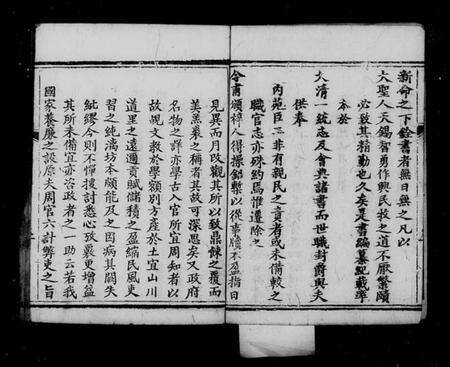 新命之下銓書者無日無之凡以
大聖人天錫智勇作興民牧之道不厭繁頤
必致其精勤也久矣是書編纂紀載率
本於
大清一統志及會典諸書而世職封爵與夫
供奉
內苑臣工非有親民之責者或未備較之
職官志亦殊約焉惟遷除之
命書頒稗人得操鉛槧以從事牘不盈揩日
見異而月改觀其所以致鼎餗之覆而
美黑裘之稱者其故可深思矣又政府
名物之詳亦學古入官所宜周知者以
故覘文教於學額別方產於土宜山川
道里之遠邇貢賦儲積之盈縮民風吏
習之純漓坊本頗能及之因病其闕失
紕繆今則不憚搜討悉心攷覈更增益
其所未備宜亦治政者之一助云若我
國家養廉之設原夫周官六計弊吏之旨